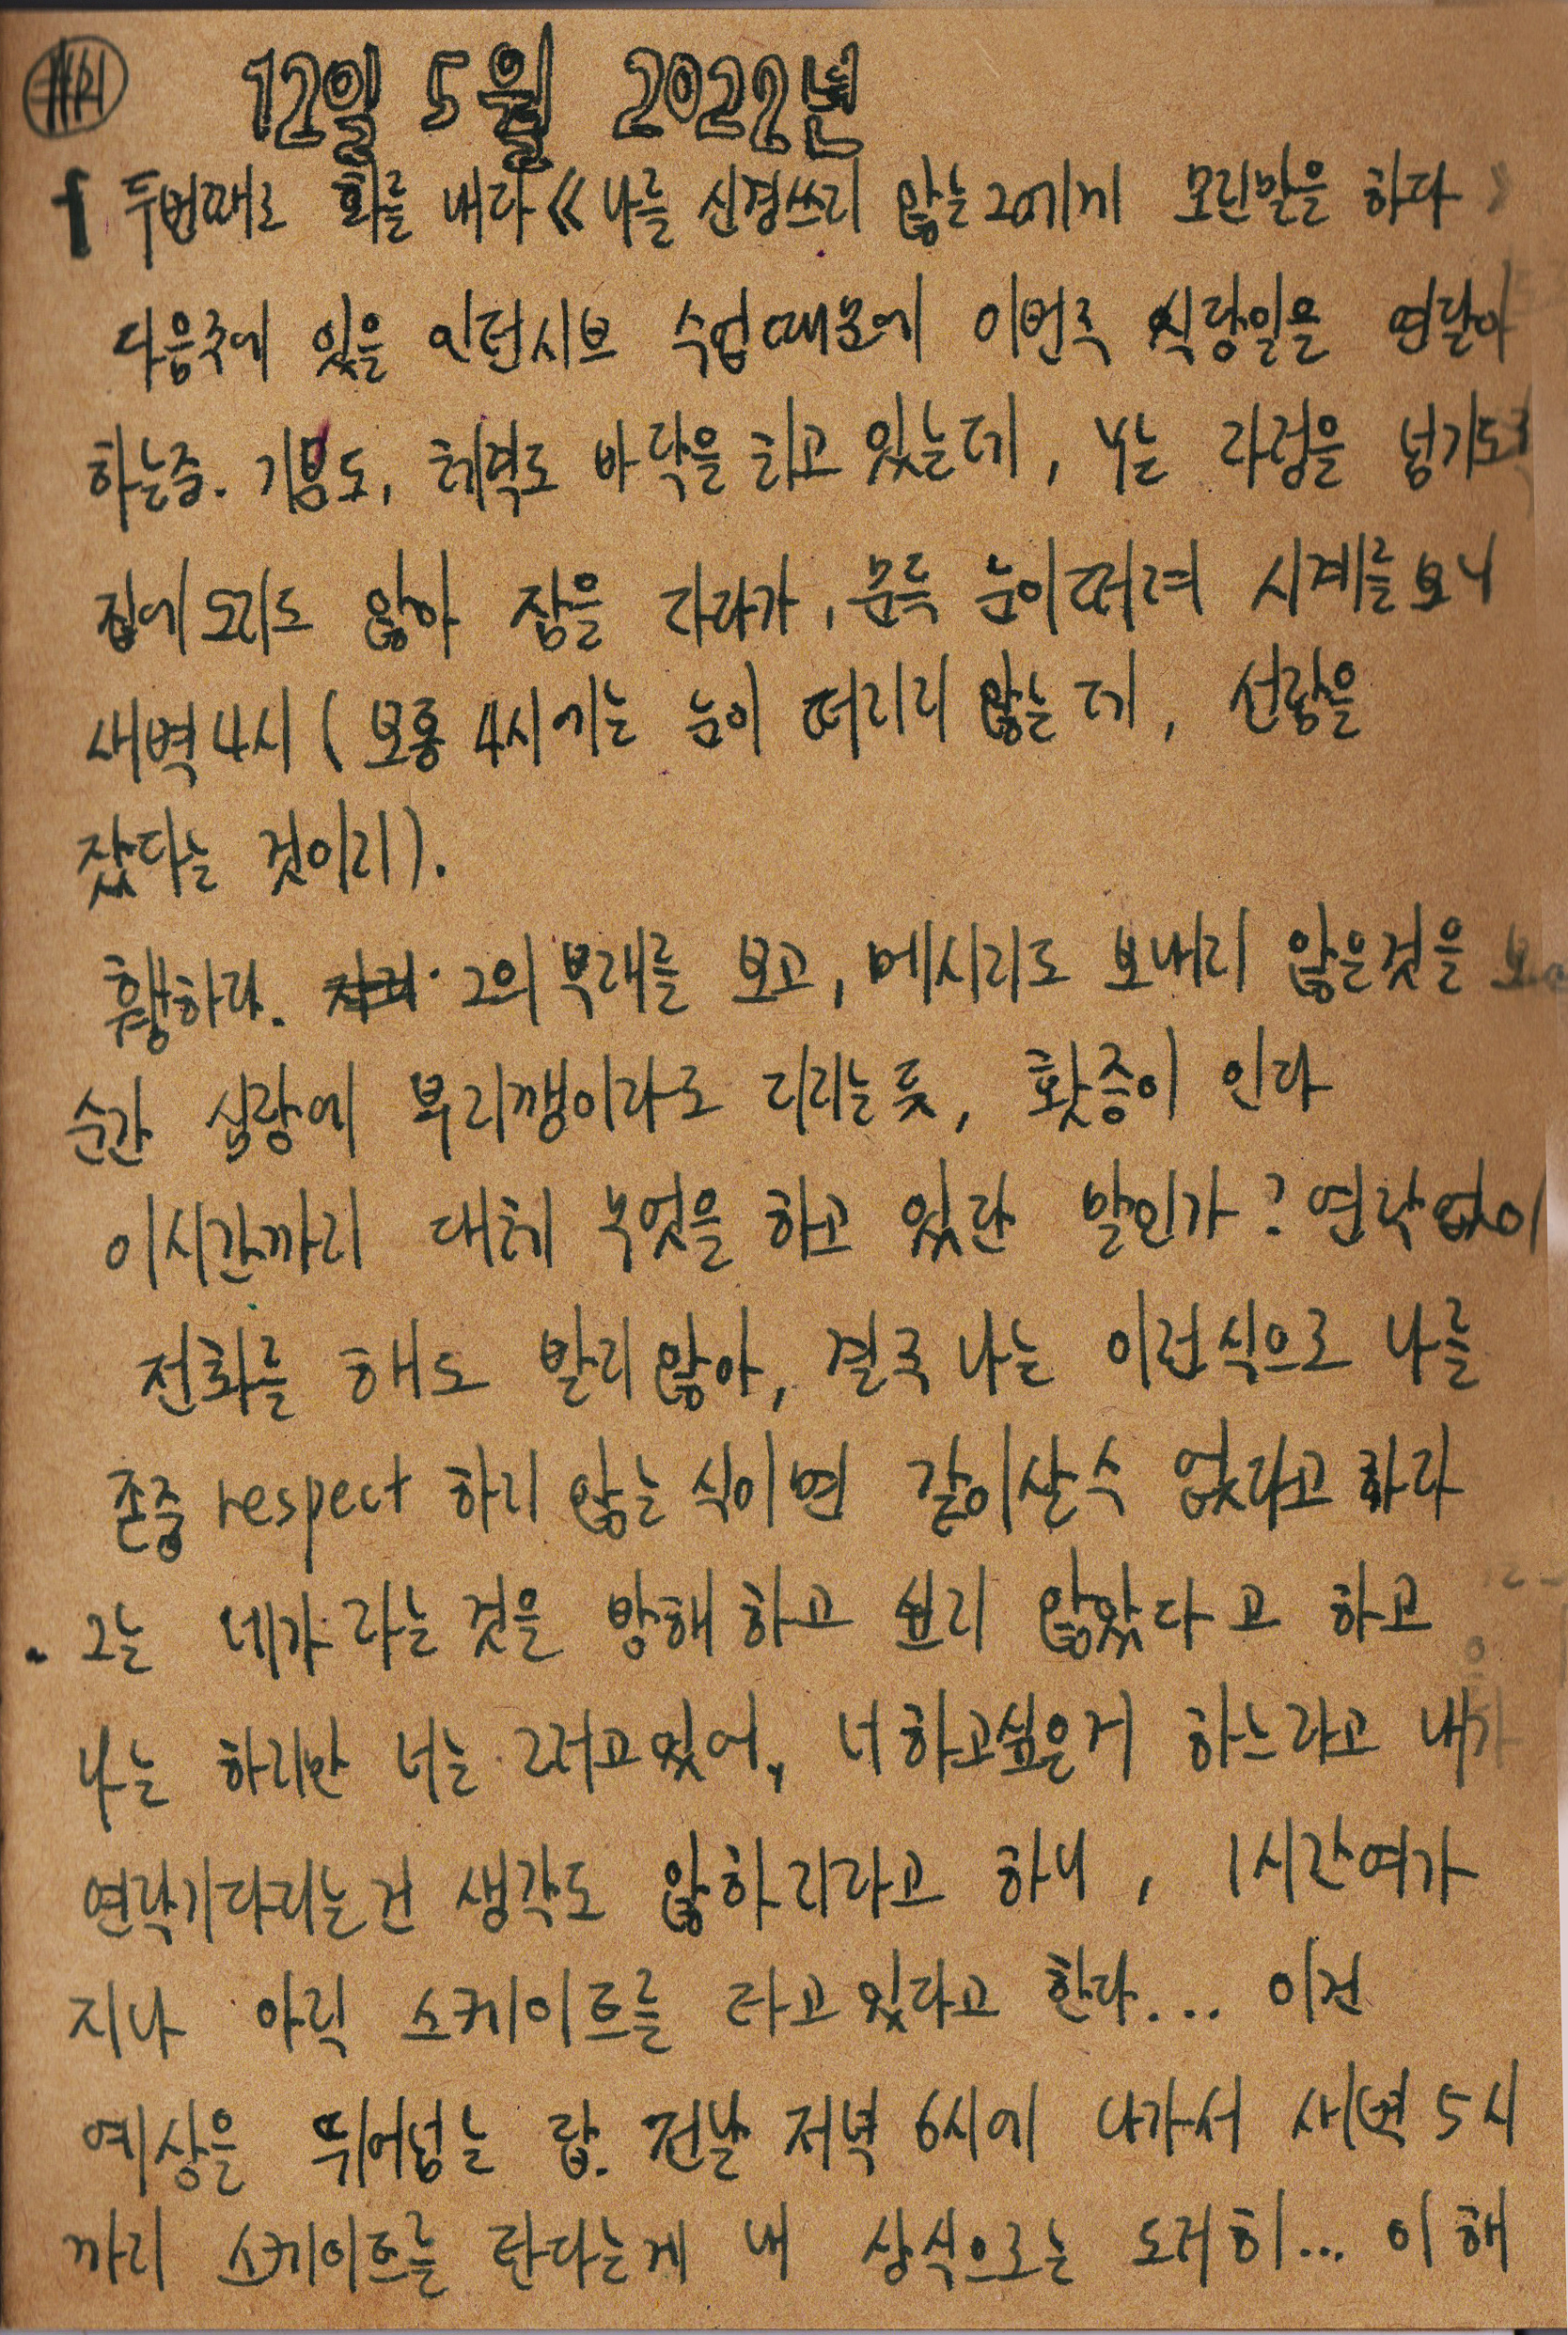 12일 5월 2022년
두번째로 화를 내다 《나를 신경쓰지 않는 그에게 모진말을 하다》
다음주에 있을 인턴시브 수업때문에 이번주 식당일을 연달아
하는중. 기분도, 체력도 바닥을 치고 있는데, 너는 자정을 넘기도록
집에 오지도 않아 잠을 자다가, 문득 눈이 떠져 시계를 보니
새벽 4시 (보통 4시에는 눈이 떠지지 않는데, 선잠을
잤다는 것이지).
휑하다. 그의 부재를 보고, 메시지도 보내지 않은것을
순간 심장에 부지깽이라도 지지는듯, 홧증이 인다
이시간까지 대체 무엇을 하고 있단 말인가? 연락 없이
전화를 해도 받지 않아, 결국 나는 이런식으로 나를
존중 respect 하지 않는 식이면 같이살수 없다고 하다
그는 네가 자는 것을 방해하고 싶지 않았다고 하고
나는 하지만 너는 그러고있어, 너하고싶은거 하느라고 내가
연락기다리는건 생각도 않하지라고 하니, 1시간여가
지나 아직 스케이트를 타고 있다고 한다... 이건
예상을 뛰어넘는 답. 전날 저녁 6시에 나가서 새벽 5시
까지 스케이트를 탄다는게 내 상식으로는 도저히... 이해